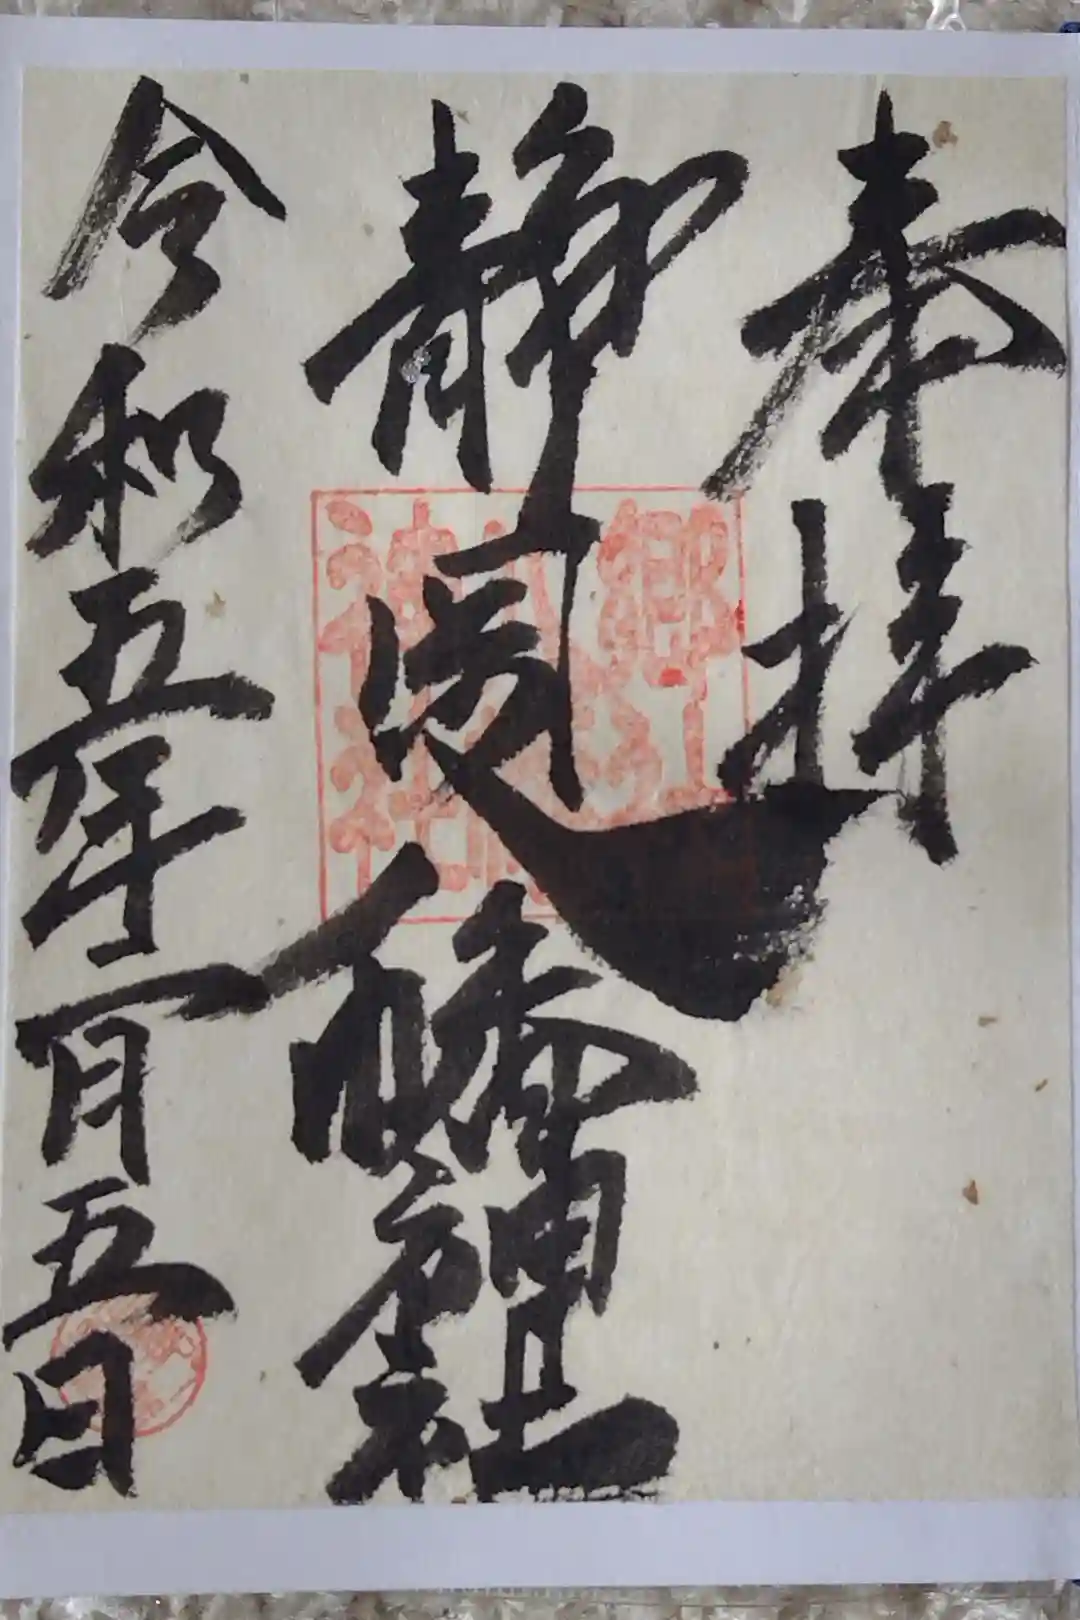 奉拝
静岡八幡神社
令和五年一月五日